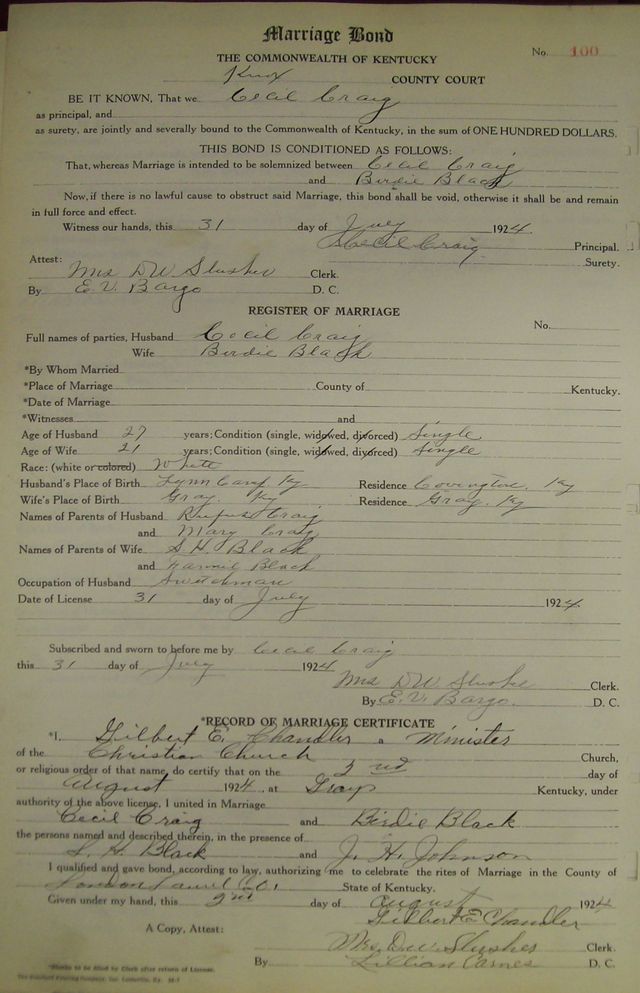 Marriage Bond
No. 100
THE COMMONWEALTH OF KENTUCKY
Knox COUNTY COURT
BE IT KNOWN, That we Cecil Craig
as principal, and
as surety, are jointly and severally bound to the Commonwealth of Kentucky, in the sum of ONE HUNDRED DOLLARS.
THIS BOND IS CONDITIONED AS FOLLOWS:
That, whereas Marriage is intended to be solemnized between Cecil Craig
and Birdie Black
Now, if there is no lawful cause to obstruct said Marriage, this bond shall be void, otherwise it shall be and remain
in full force and effect.
Witness our hands, this 31 day of July 1924.
Cecil Craig Principal.
Surety.
Attest:
Mrs D W Slusher Clerk.
By E. V. Bargo D. C.
REGISTER OF MARRIAGE
No.
Full names of parties, Husband Cecil Craig
Wife Birdie Black
*By Whom Married
*Place of Marriage County of Kentucky.
*Date of Marriage
*Witnesses and
Age of Husband 27 years; Condition (single, widowed, divorced) Single
Age of Wife 21 years; Condition (single, widowed, divorced) Single
Race: (white or colored) White
Husband's Place of Birth Lynn Camp Ky Residence Covington, Ky
Wife's Place of Birth Gray, Ky Residence Gray, Ky
Names of Parents of Husband Rufus Craig
and Mary Craig
Names of Parents of Wife S. H. Black
and Black
Occupation of Husband Switchman
Date of License 31 day of July 1924.
Subscribed and sworn to before me by Cecil Craig
this 31 day of July 1924
Mrs D W Slusher Clerk.
By E. V. Bargo. D. C.
*RECORD OF MARRIAGE CERTIFICATE
*I, Gilbert E. Chandler a Minister
of the Christian Church Church,
or religious order of that name, do certify that on the 2nd day of
August 1924, at Grays Kentucky, under
authority of the above license, I united in Marriage
Cecil Craig and Birdie Black
the persons named and described therein, in the presence of
S. H. Black and J. H. Johnson
I qualified and gave bond, according to law, authorizing me to celebrate the rites of Marriage in the County of
London Laurel Co. State of Kentucky.
Given under my hand, this 2nd day of August 1924
Gilbert E Chandler
A Copy, Attest:
Mrs. D. W. Slusher Clerk.
By Lillian Carnes D. C.
*Blanks to be filled by Clerk after return of License.